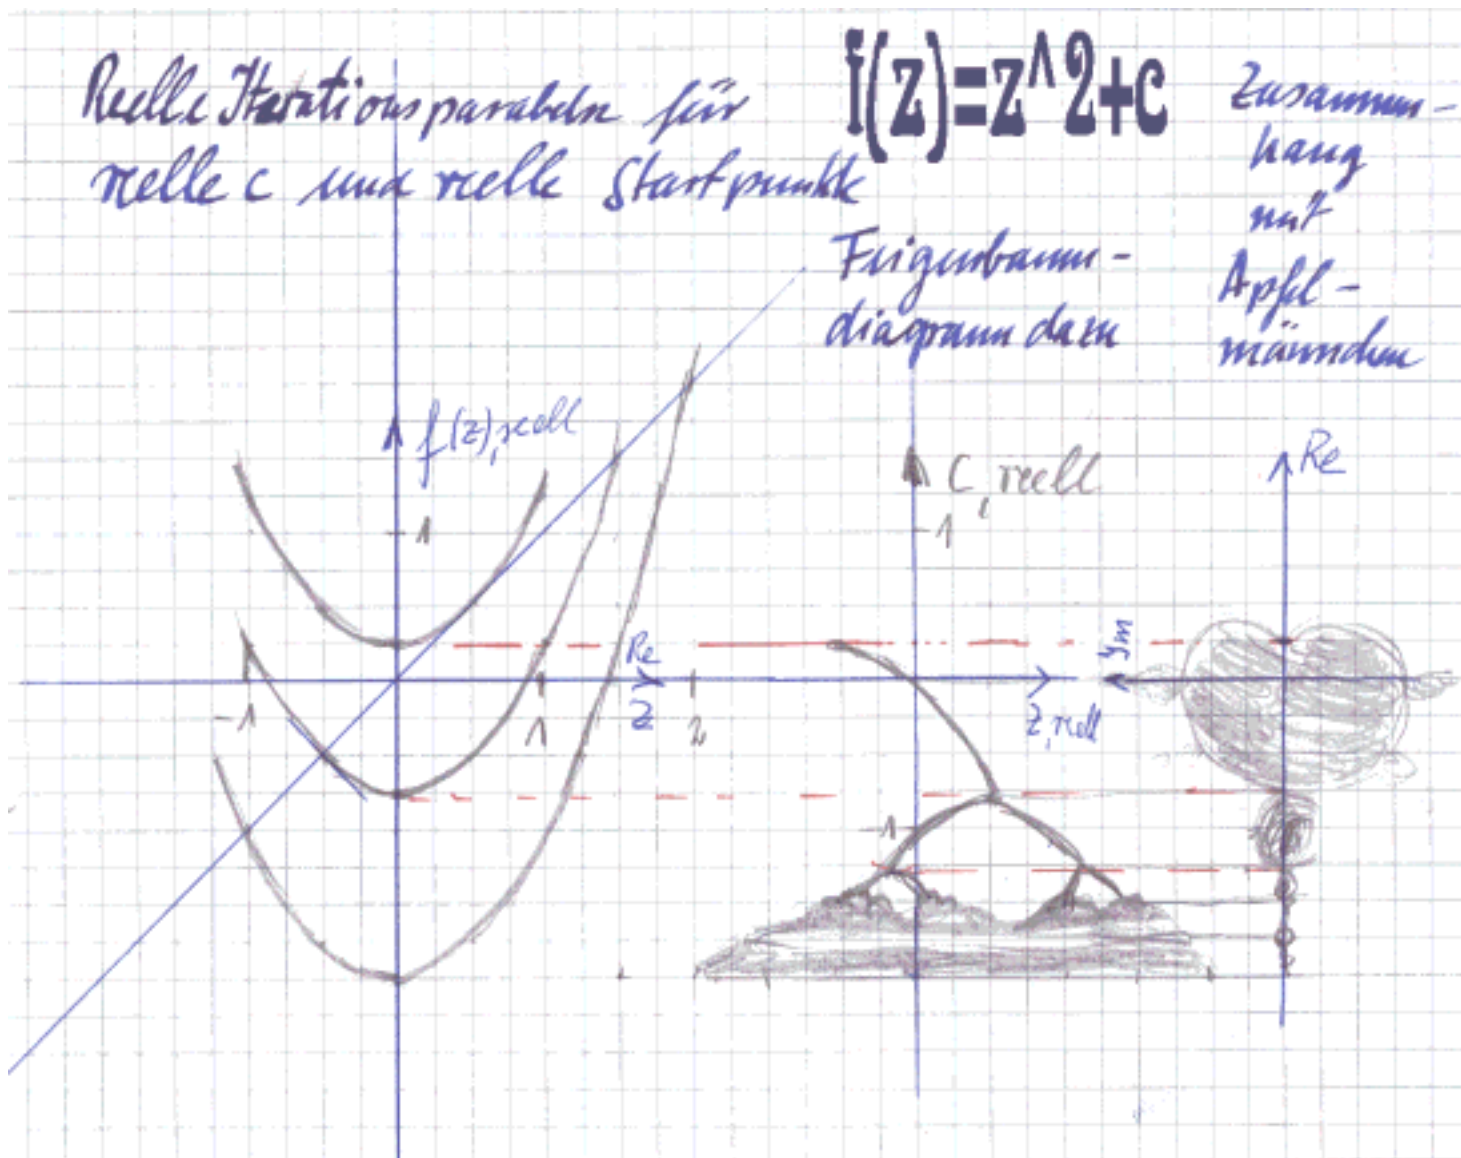 Reelle Iterationsparabeln für
reelle c und reelle Startpunkte
f(z)=z^2+c
Zusammen-
hang
mit
Apfel-
männchen
Feigenbaum-
diagramm dazu
f(z),reell
1
-1
1
2
Re
z
C, reell
1
-1
z, reell
Ym
Re